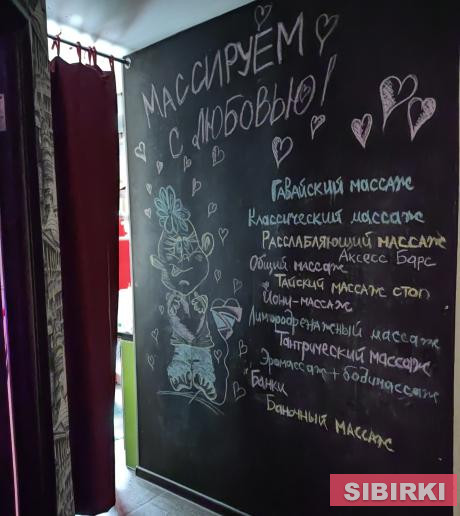 МАССИРУЕМ
С ЛЮБОВЬЮ!
ГАВАЙСКИЙ МАССАЖ
КЛАССИЧЕСКИЙ МАССАЖ
РАССЛАБЛЯЮЩИЙ МАССАЖ
АКСЕСС БАРС
ОБЩИЙ МАССАЖ
ТАЙСКИЙ МАССАЖ СТОП
ЙОНИ-МАССАЖ
ЛИМФОДРЕНАЖНЫЙ МАССАЖ
ТАНТРИЧЕСКИЙ МАССАЖ
ЭРОМАССАЖ + БОДИМАССАЖ
БАНКИ
БАНОЧНЫЙ МАССАЖ
SIBIRKI